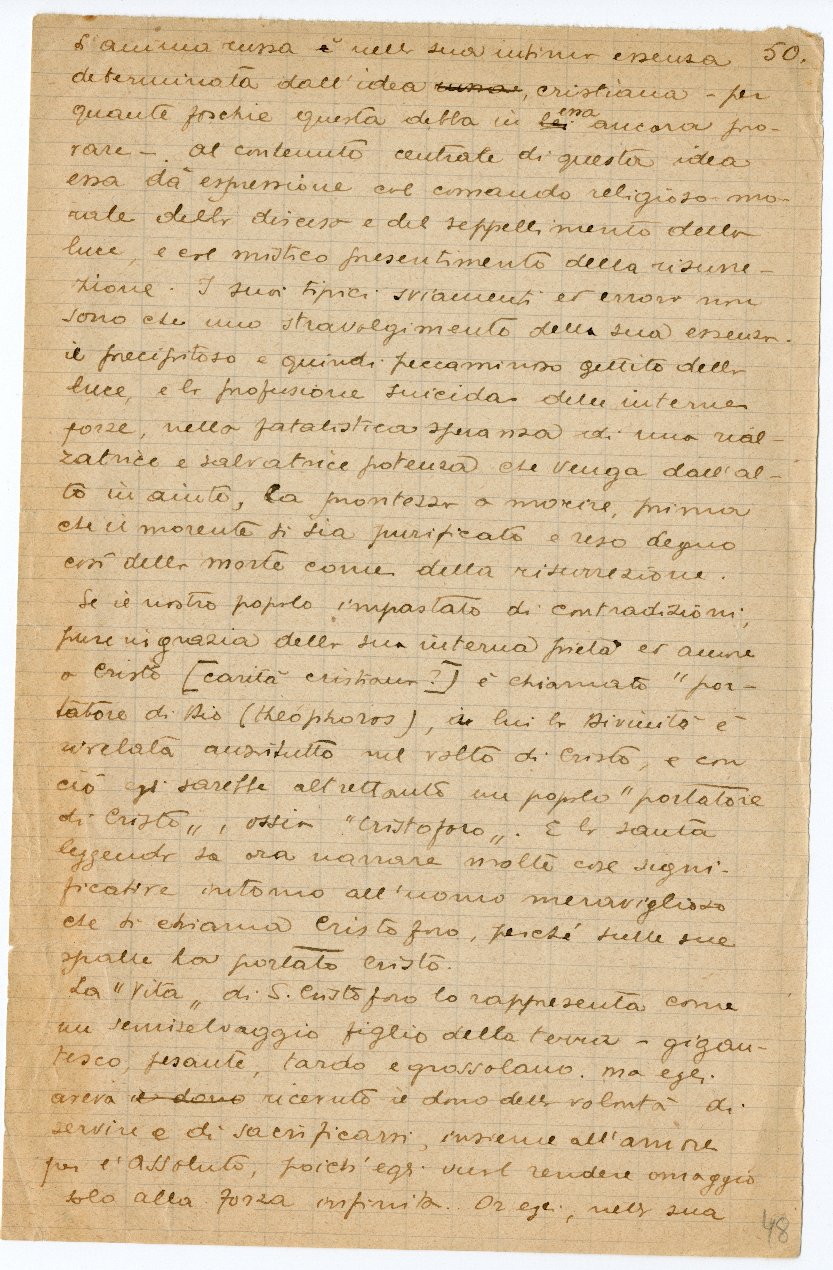 50.
L'anima russa è nella sua intima essenza
determinata dall'idea russa, cristiana - per
quante foschie questa debba in lei essa ancora pro-
vare - . Al contenuto centrale di questa idea
essa dà espressione col comando religioso-mo-
rale della discesa e del seppellimento della
luce, e col mistico presentimento della risurre-
zione. I suoi tipici sviamenti ed errori non
sono che uno stravolgimento della sua essenza.
il precipitoso e quindi peccaminoso gettito della
luce, e la profusione suicida delle interne
forze, nella fatalistica speranza di una rial-
zatrice e salvatrice potenza che venga dall'al-
to in aiuto, la prontezza a morire, prima
che il morente si sia purificato e reso degno
così della morte come della risurrezione.
Se il nostro popolo impastato di contradizioni,
pure in grazia della sua interna pietà ed amore
a Cristo [carità cristiana?] è chiamato "por-
tatore di Dio (theophoros), in lui la Divinità è
rivelata anzitutto nel volto di Cristo, e con
ciò egli sarebbe altrettanto un popolo "portatore
di Cristo„, ossia "Cristoforo„. E la santa
leggenda sa ora narrare molte cose signi-
ficative intorno all'uomo meraviglioso
che si chiama Cristoforo, perché sulle sue
spalle ha portato Cristo.
La "Vita„ di S. Cristoforo lo rappresenta come
un semiselvaggio figlio della terra - gigan-
tesco, pesante, tardo e grossolano. Ma egli
aveva il dono ricevuto il dono della volontà di
servire e di sacrificarsi, insieme all'amore
per l'Assoluto, poich'egli vuol rendere omaggio
solo alla forza infinita. Or egli, nella sua
48